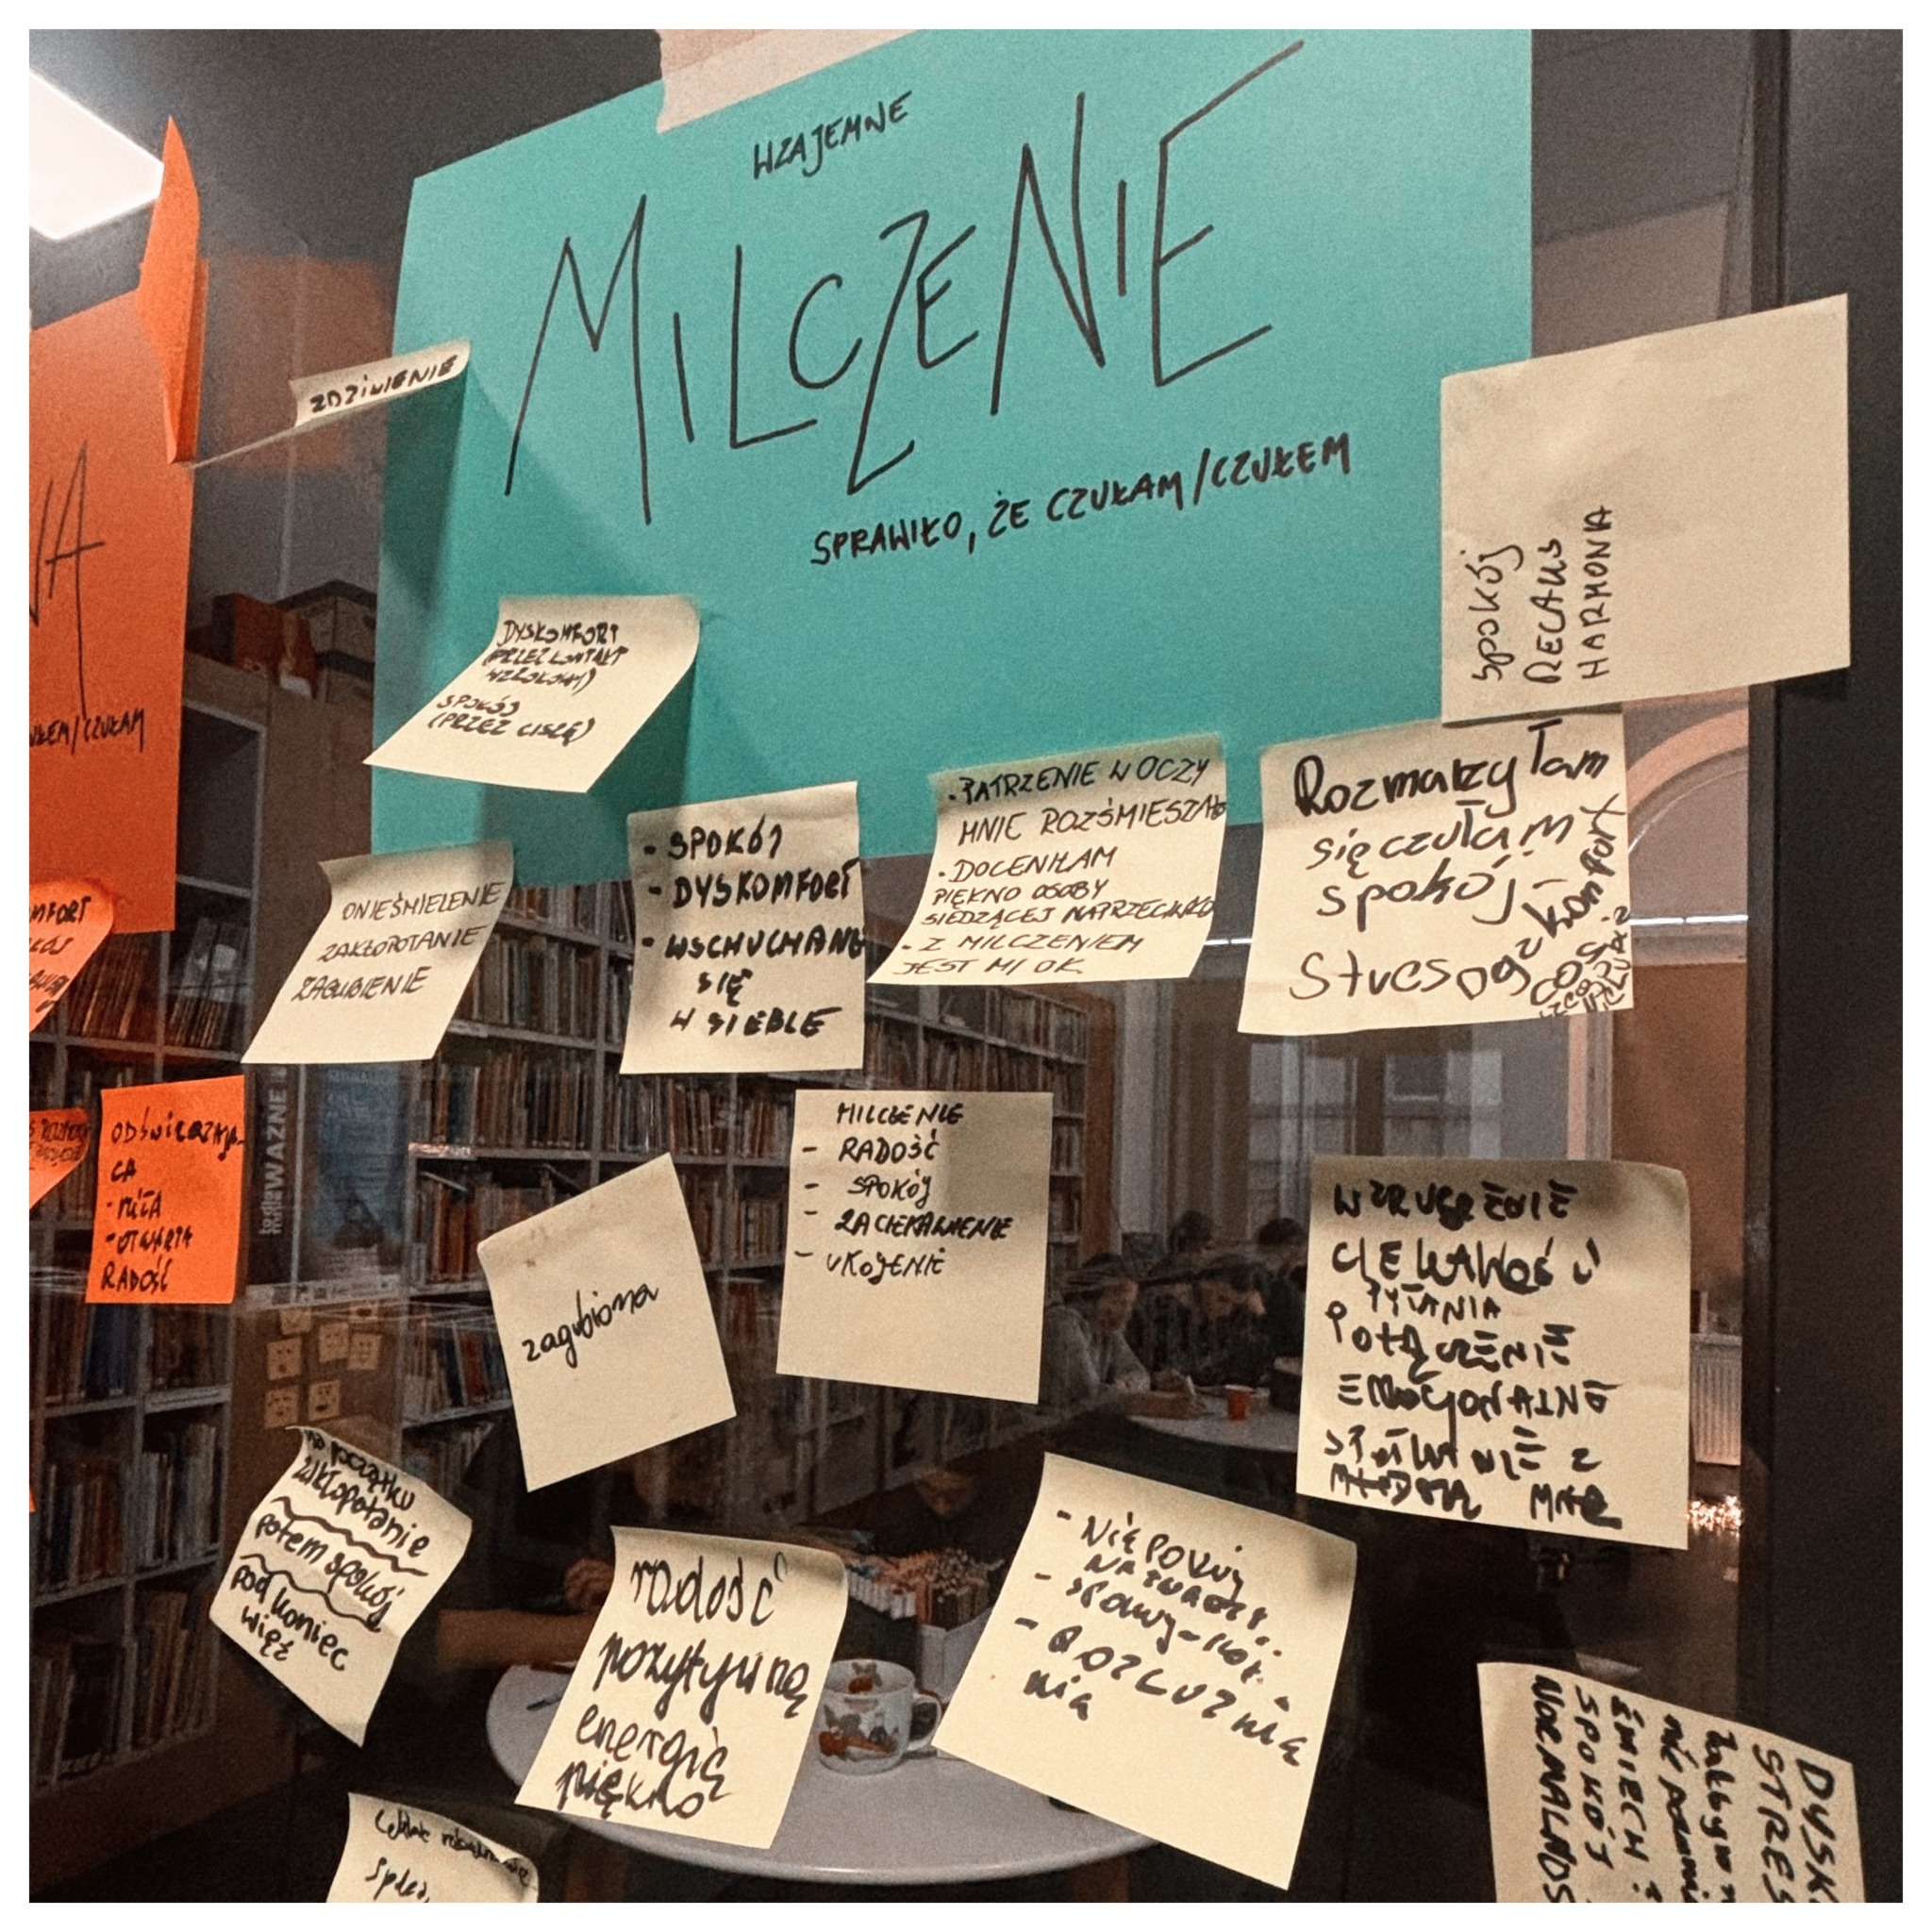 WZAJEMNE
MILCZENIE
SPRAWIŁO, ŻE CZUŁAM/CZUŁEM
ZDZIWIENIE
NA
CZUŁAM
SPOKÓJ
RELAKS
HARMONIA
DYSKOMFORT
(PRZEZ KONTAKT
WZROKOWY)
SPOKÓJ
(PRZEZ CISZĘ)
ONIEŚMIELENIE
ZAKŁOPOTANIE
ZAGUBIENIE
- SPOKÓJ
- DYSKOMFORT
- WSCHUCHANE
SIĘ
W SIEBIE
- PATRZENIE W OCZY
MNIE ROZŚMIESZAŁO
- DOCENIŁAM
PIĘKNO OSOBY
SIEDZĄCEJ NAPRZECIWKO
- Z MILCZENIEM
JEST MI OK
Rozmarzyłam
się czułam
spokój -
komfort
ODŚWIERZAJĄ-
CA
- MIŁA
- OTWARTA
RADOŚĆ
WAŻNE
zagubiona
MILCZENIE
- RADOŚĆ
- SPOKÓJ
- ZACIEKAWIENIE
- UKOJENIE
WZRUSZENIE
CIEKAWOŚĆ
PYTANIA
POŁĄCZENIE
EMOCJONALNE
Z
na początku
zakłopotanie
potem spokój
pod koniec
więź
radość
pozytywną
energię
piękno
- NIEPOKÓJ
DYSK
STRES
ŚMIECH
SPOKÓJ
NORMALNOŚ